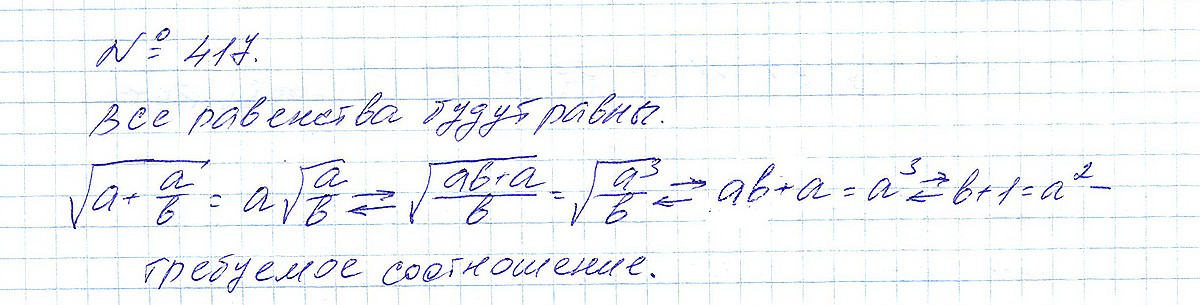 № 417.
Все равенства будут равны.
√(a + a/b) = a√(a/b) ⇄ √((ab+a)/b) = √(a³/b) ⇄ ab+a = a³ ⇄ b+1 = a² –
требуемое соотношение.